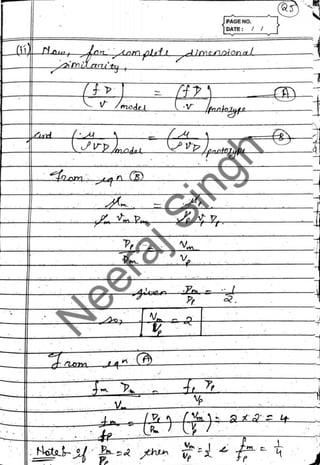 25
PAGE NO.
DATE: / /
(ii) Now, for complete dimensional
similarity,
(f D / V)model = (f D / V)prototype — (A)
and (μ / ρVD)model = (μ / ρVD)prototype — (B)
From eqn (B)
μm / ρm Vm Dm = μp / ρp Vp Dp
Dp / Dm = Vm / Vp
given Dm / Dp = 1 / 2
so, Vm / Vp = 2
From eqn (A)
fm Dm / Vm = fp Dp / Vp
fm / fp = (Dp / Dm) (Vm / Vp) = 2 x 2 = 4
Note:- if Dm / Dp = 2 then Vm / Vp = 1 / 2 & fm / fp = 1 / 4
Neeraj Singh